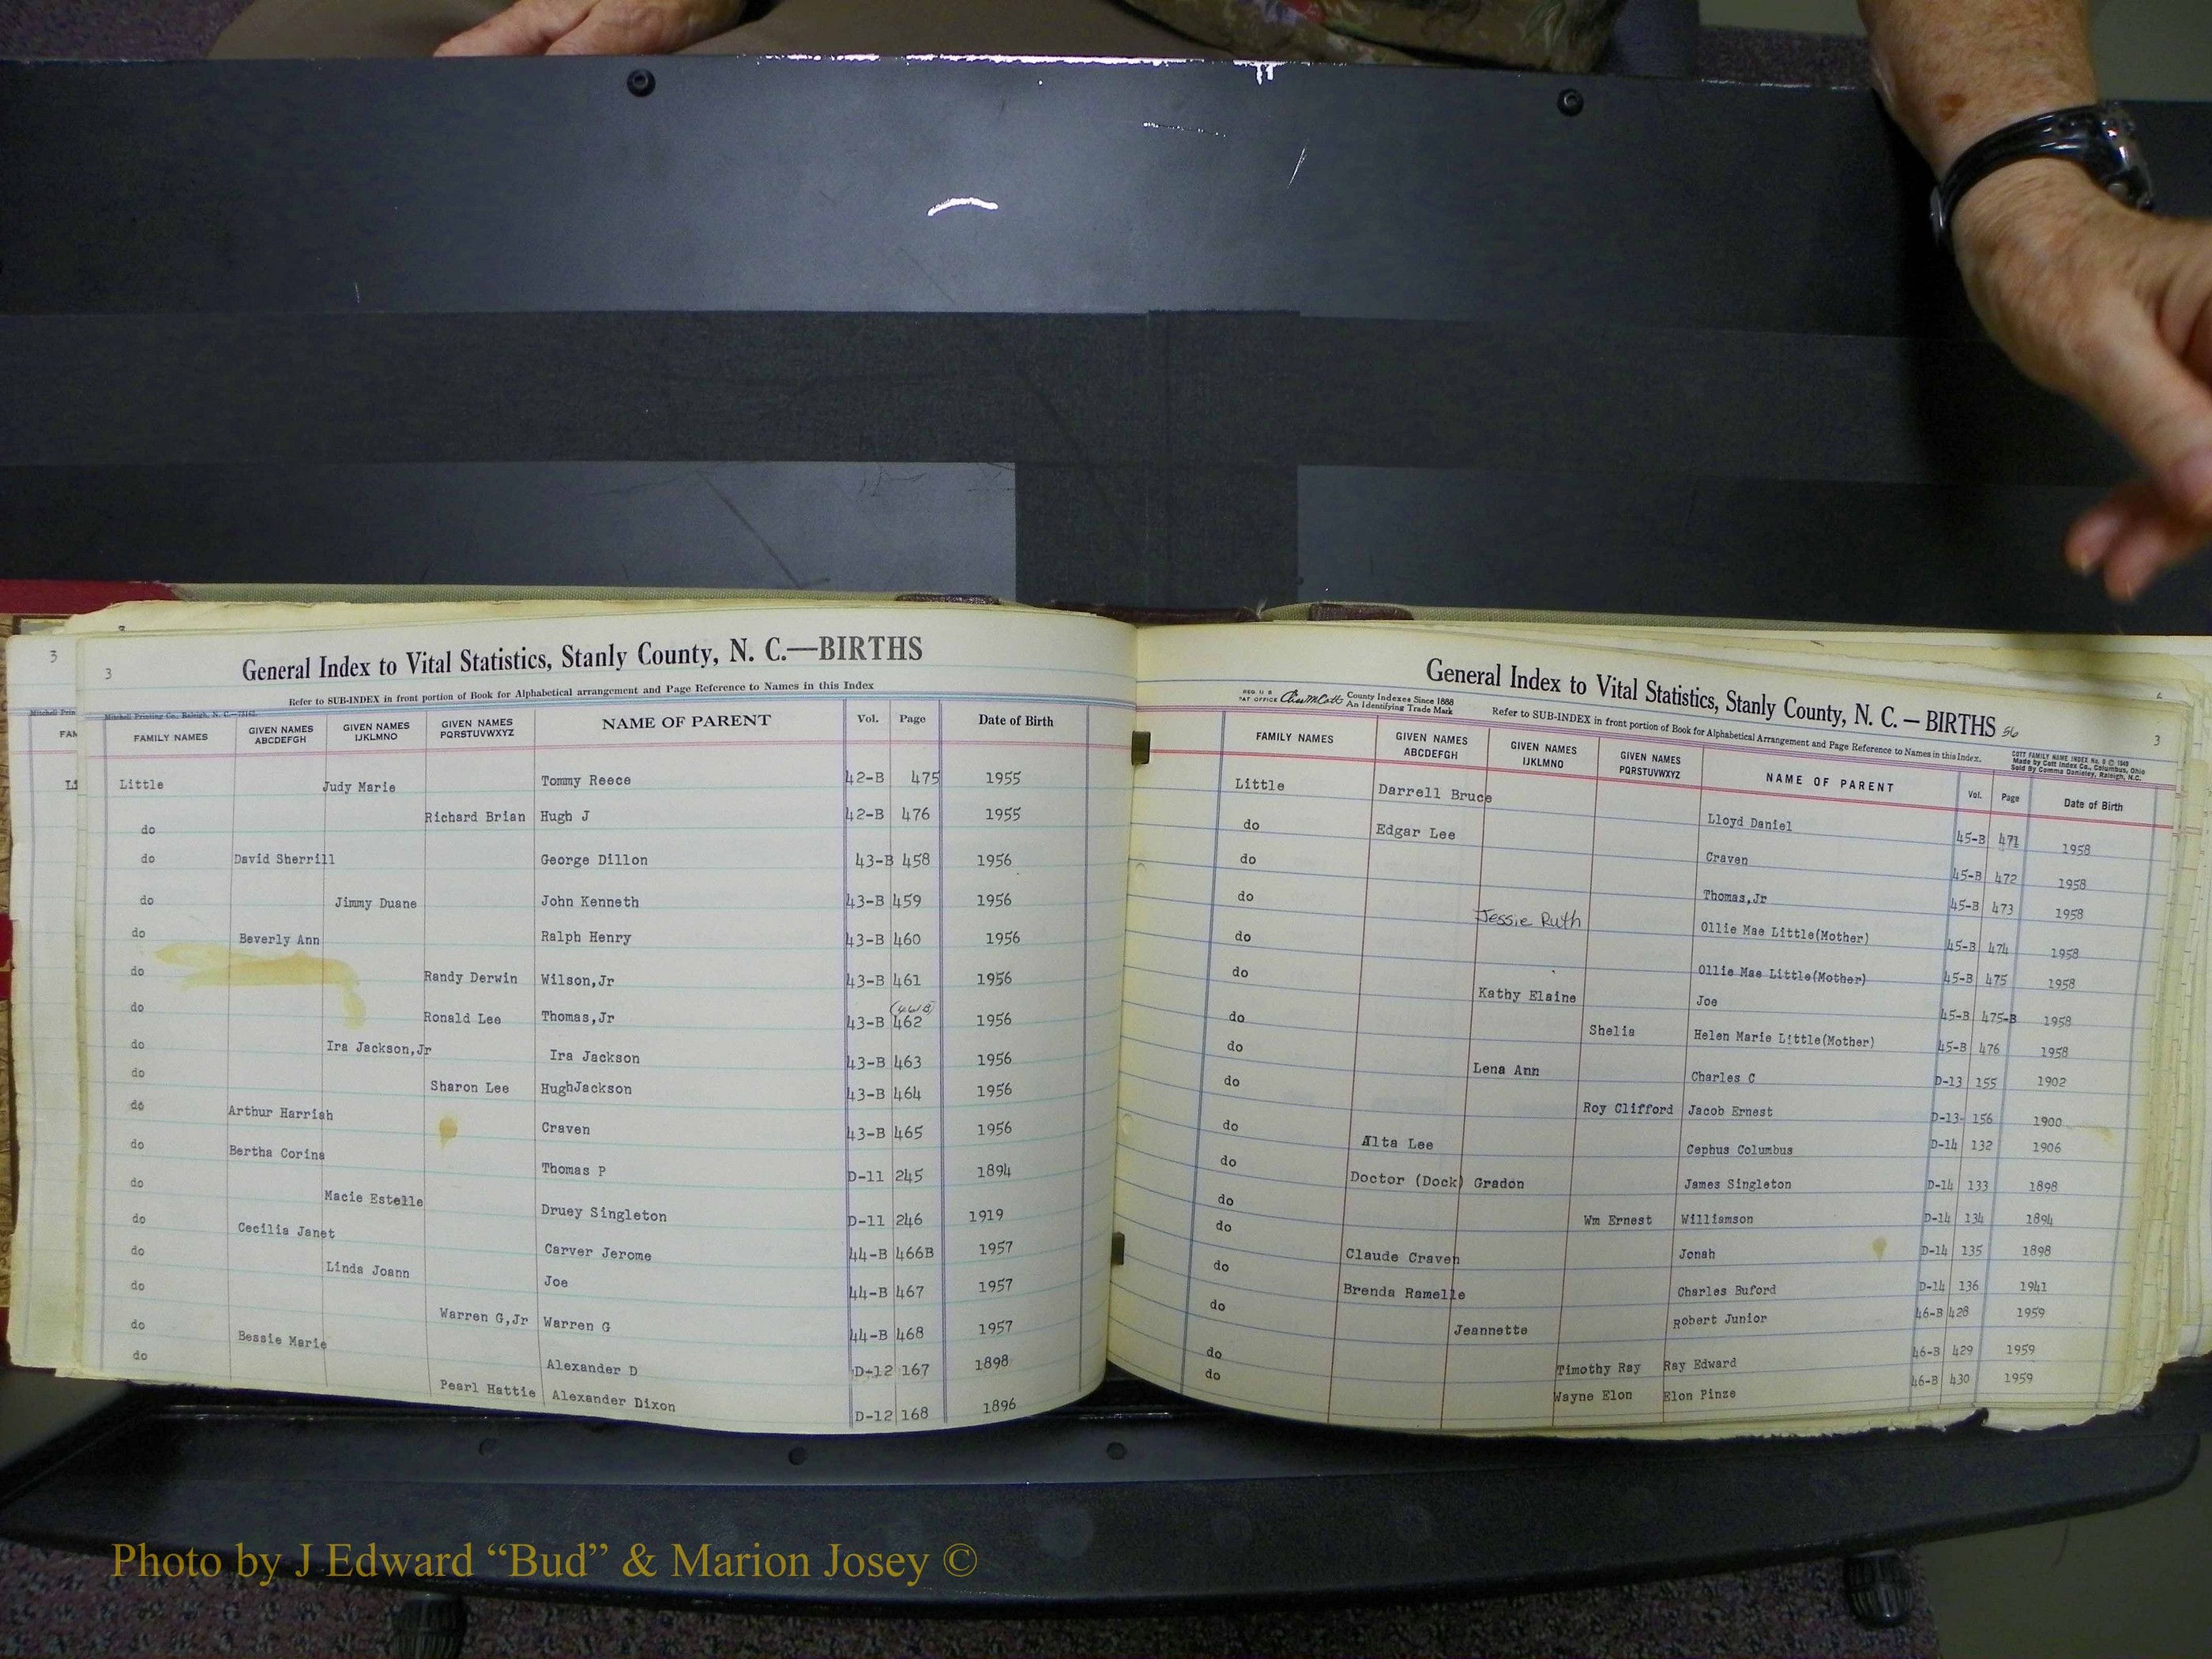 3
3
General Index to Vital Statistics, Stanly County, N. C.—BIRTHS
Refer to SUB-INDEX in front portion of Book for Alphabetical arrangement and Page Reference to Names in this Index
Mitchell Printing Co., Raleigh, N. C.
FAMILY NAMES GIVEN NAMES ABCDEFGH GIVEN NAMES IJKLMNO GIVEN NAMES PQRSTUVWXYZ NAME OF PARENT Vol. Page Date of Birth
Little Judy Marie Tommy Reece 42-B 475 1955
do Richard Brian Hugh J 42-B 476 1955
do David Sherrill George Dillon 43-B 458 1956
do Jimmy Duane John Kenneth 43-B 459 1956
do Beverly Ann Ralph Henry 43-B 460 1956
do Randy Derwin Wilson,Jr 43-B 461 1956
(461B)
do Ronald Lee Thomas,Jr 43-B 462 1956
do Ira Jackson,Jr Ira Jackson 43-B 463 1956
do Sharon Lee HughJackson 43-B 464 1956
do Arthur Harrish Craven 43-B 465 1956
do Bertha Corina Thomas P D-11 245 1894
do Macie Estelle Druey Singleton D-11 246 1919
do Cecilia Janet Carver Jerome 44-B 466B 1957
do Linda Joann Joe 44-B 467 1957
do Warren G,Jr Warren G 44-B 468 1957
do Bessie Marie Alexander D D-12 167 1898
do Pearl Hattie Alexander Dixon D-12 168 1896
General Index to Vital Statistics, Stanly County, N. C. — BIRTHS 56
REG U S PAT OFFICE County Indexes Since 1888 An Identifying Trade Mark
Refer to SUB-INDEX in front portion of Book for Alphabetical Arrangement and Page Reference to Names in this Index.
3
COTT FAMILY NAME INDEX
Made by Cott Index Co., Columbus, Ohio
Raleigh, N.C.
FAMILY NAMES GIVEN NAMES ABCDEFGH GIVEN NAMES IJKLMNO GIVEN NAMES PQRSTUVWXYZ NAME OF PARENT Vol. Page Date of Birth
Little Darrell Bruce Lloyd Daniel 45-B 471 1958
do Edgar Lee Craven 45-B 472 1958
do Thomas,Jr 45-B 473 1958
do Jessie Ruth Ollie Mae Little(Mother) 45-B 474 1958
do Ollie Mae Little(Mother) 45-B 475 1958
do Kathy Elaine Joe 45-B 475-B 1958
do Shelia Helen Marie Little(Mother) 45-B 476 1958
do Lena Ann Charles C D-13 155 1902
do Roy Clifford Jacob Ernest D-13- 156 1900
do Alta Lee Cephus Columbus D-14 132 1906
do Doctor (Dock) Gradon James Singleton D-14 133 1898
do Wm Ernest Williamson D-14 134 1894
do Claude Craven Jonah D-14 135 1898
do Brenda Ramelle Charles Buford D-14 136 1941
do Jeannette Robert Junior 46-B 428 1959
do Timothy Ray Ray Edward 46-B 429 1959
do Wayne Elon Elon Pinze 46-B 430 1959
Photo by J Edward “Bud” & Marion Josey ©